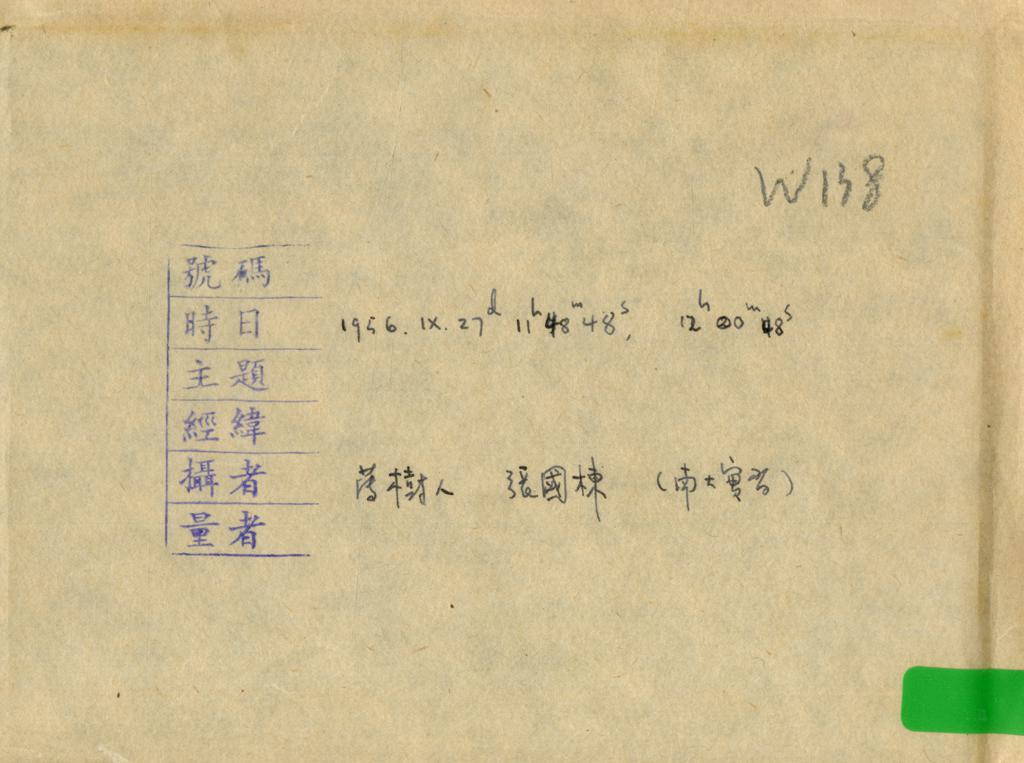 W138
號碼
時日 1956. IX. 27ᵈ 11ʰ 48ᵐ 48ˢ, 12ʰ 00ᵐ 48ˢ
主題
經緯
攝者 薄樹人 張國棟 (南大實習)
量者